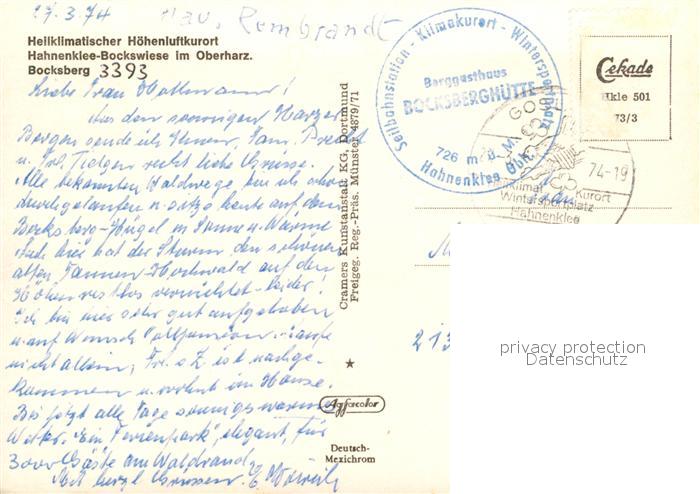 27.3.74
Hav. Rembrandt
Heilklimatischer Höhenluftkurort
Hahnenklee-Bockswiese im Oberharz.
Bocksberg 3393
Liebe Frau
Aus den sonnigen Harzer
Bergen sende ich Ihnen, Fam.
u. Frl. recht liebe Grüsse.
Alle bekannten Waldwege bin ich schon
durchgelaufen u. sitze heute auf dem
Bocksberg-Hügel in Sonne u. Wärme
Auch hier hat der Sturm den schönen
alten Tannen Hochwald auf den
Höhen restlos vernichtet - leider!
Ich bin hier sehr gut aufgehoben
u. auf Wunsch
nicht allein, Fr. ist nachge-
kommen u. wohnt im Hause.
Bis jetzt alle Tage sonniges warmes
Wetter. "Ein Ferienpark", elegant, für
3000 Gäste am Waldrand.
Mit herzl. Grüssen
Cramers Kunstanstalt KG, Dortmund
Freigeg. Reg.-Präs. Münster 4879/71
Agfacolor
Deutsch-
Mexichrom
Seilbahnstation - Klimakurort - Wintersportplatz
Berggasthaus
BOCKSBERGHÜTTE
726 m ü. M.
Hahnenklee
74-19
Kurort
Wintersportplatz
Hahnenklee
Cekade
Hkle 501
73/3
213
privacy protection
Datenschutz